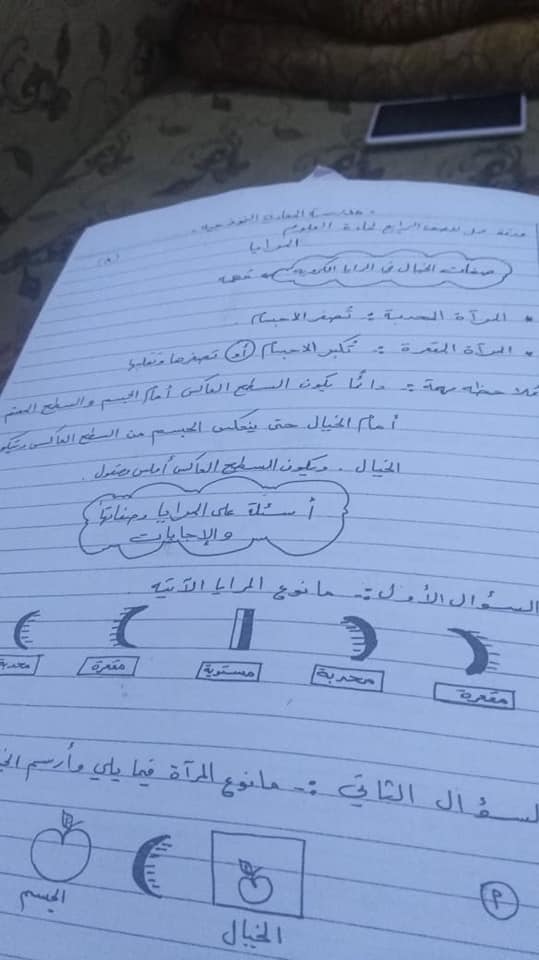 مدرسة المعارف النموذجية
ورقة عمل للصف الرابع لمادة العلوم
المرايا
(٨)
صفات الخيال في المرايا الكروية
* المرآة المحدبة :- تصغر الأجسام .
* المرآة المقعرة :- تكبر الأجسام (أو) تصغرها وتقلبها
ملاحظة مهمة :- دائماً يكون السطح العاكس أمام الجسم والسطح المعتم
أمام الخيال حتى ينعكس الجسم من السطح العاكس ويتكون
الخيال . ويكون السطح العاكس أملس ومصقول .
أسئلة على المرايا وصفاتها
والإجابات
السؤال الأول :- ما نوع المرايا الآتية .
مقعرة محدبة مستوية مقعرة محدبة
السؤال الثاني :- ما نوع المرآة فيما يلي وأرسم
الجسم
الخيال